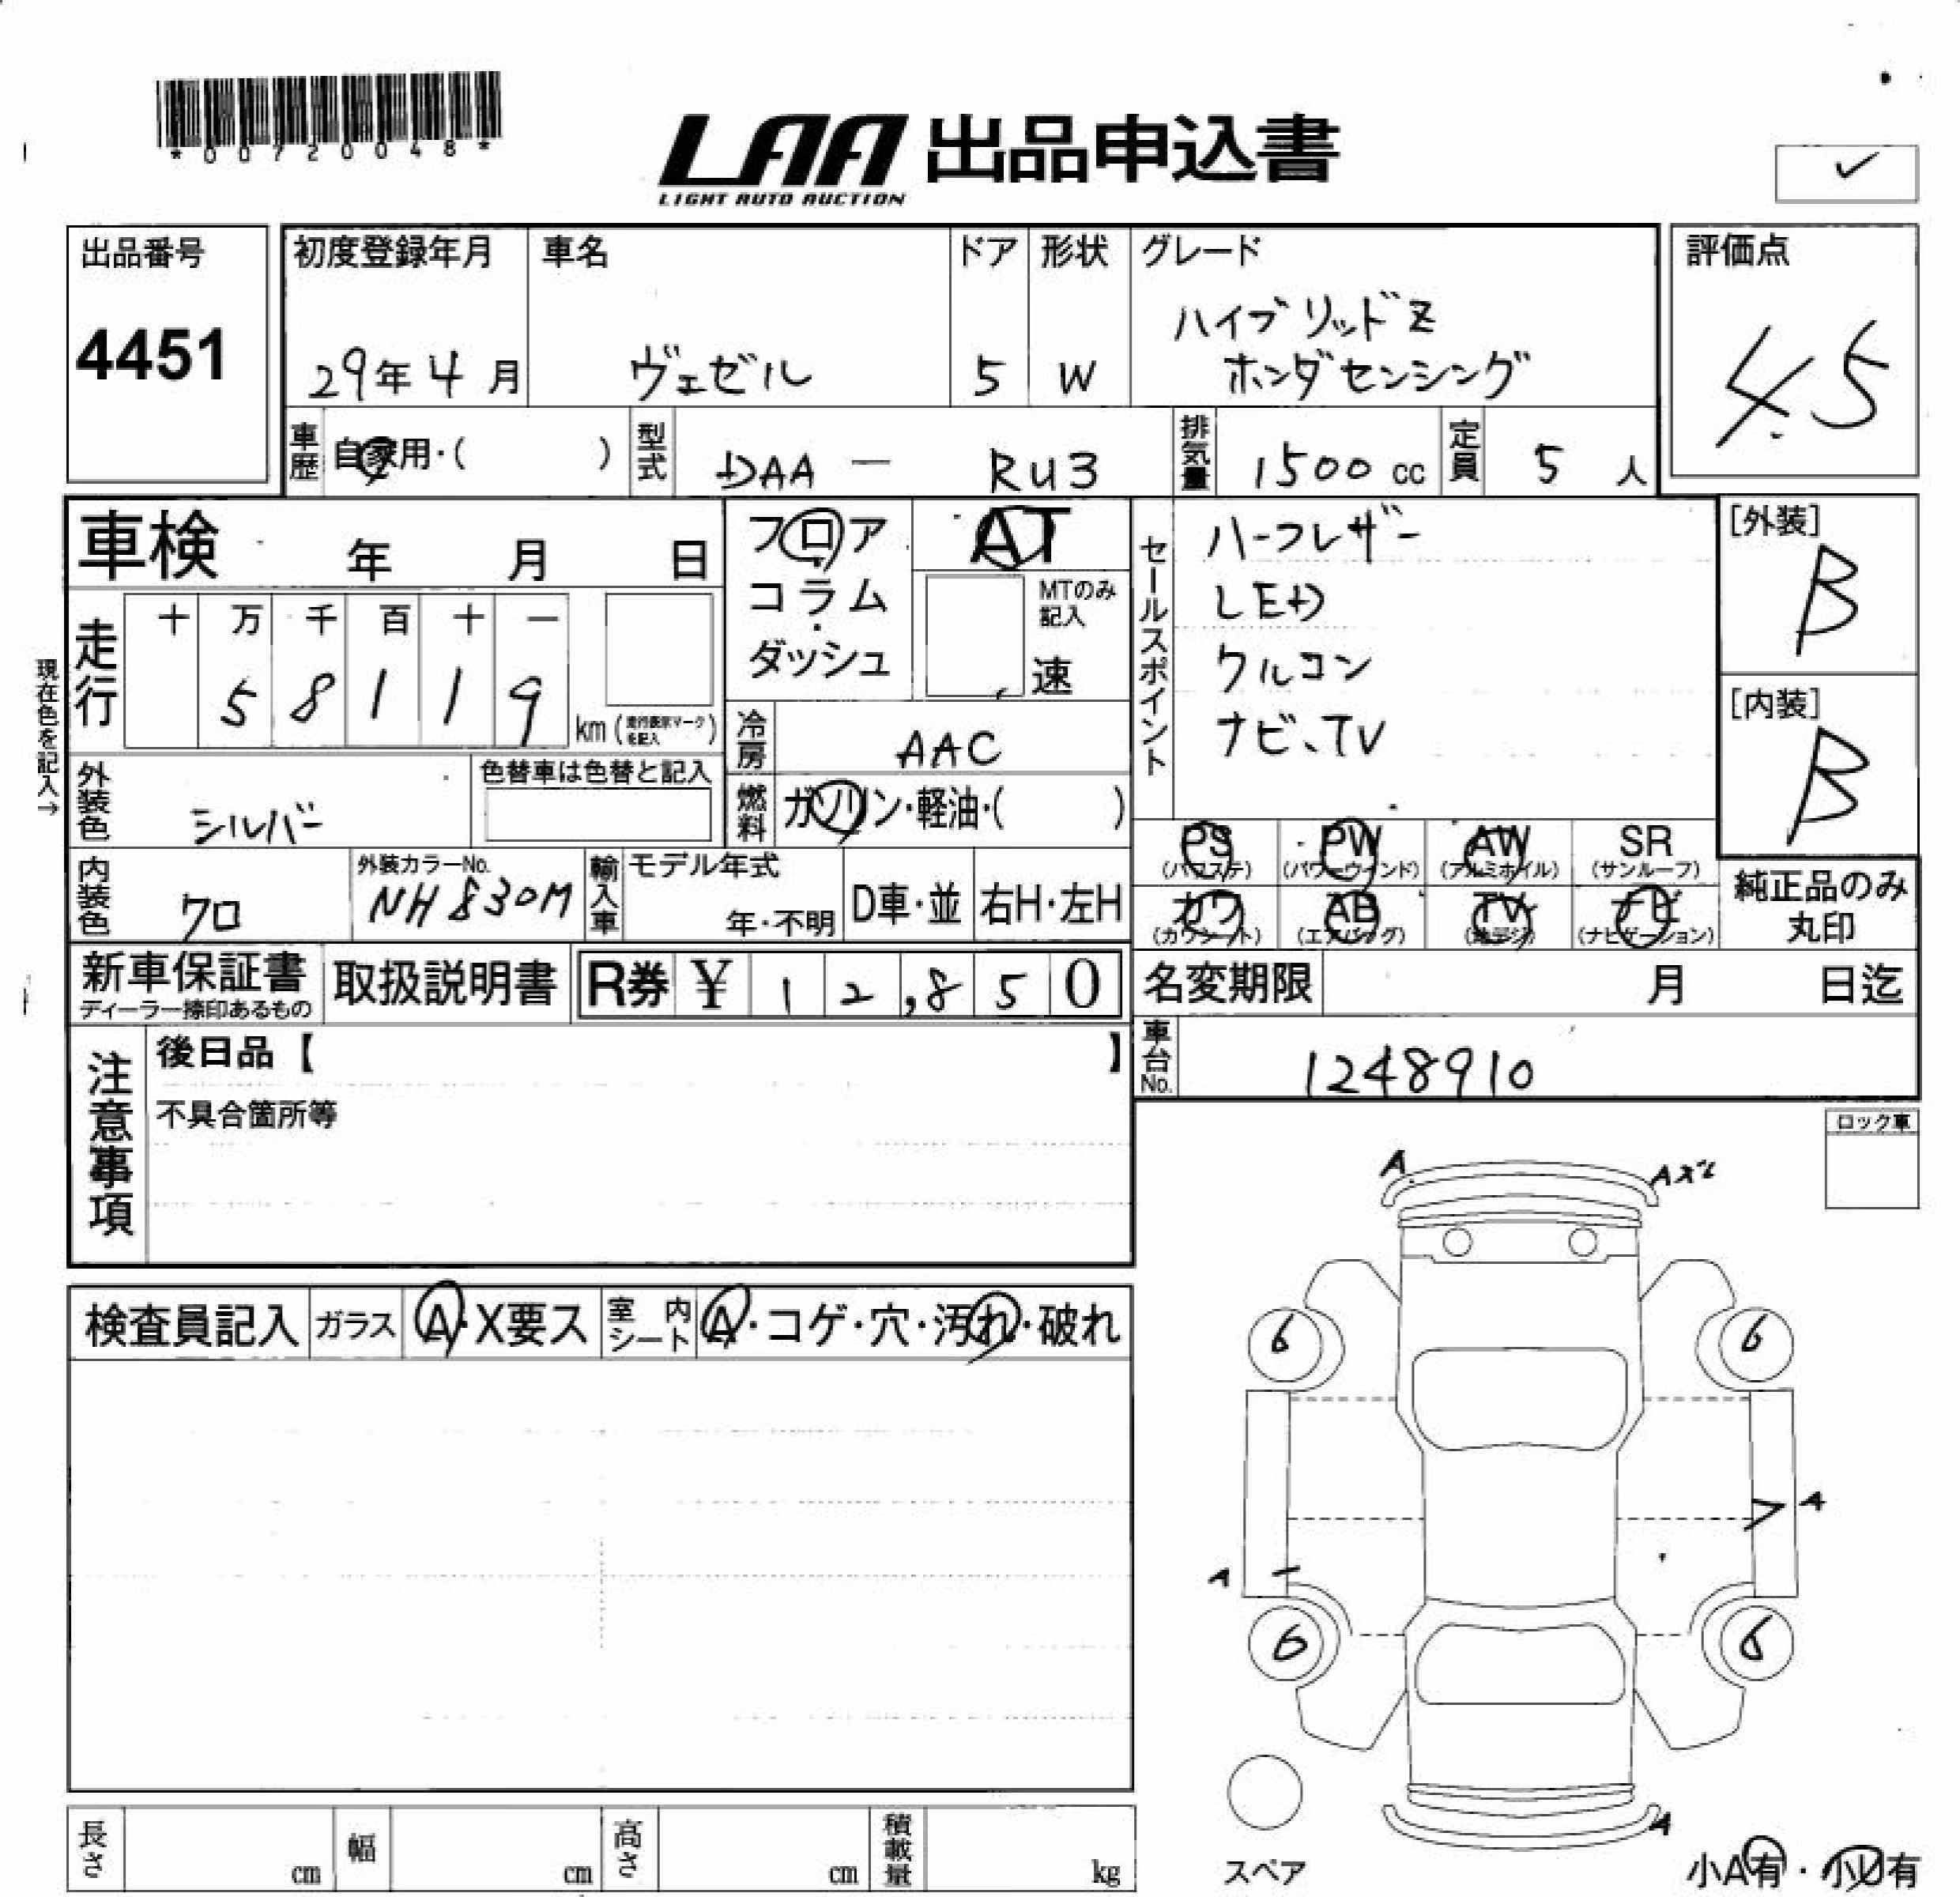 *00720048*
LAA 出品申込書
LIGHT AUTO AUCTION
✓
出品番号
4451
初度登録年月
29年4月
車名
ヴェゼル
ドア
5
形状
W
グレード
ハイブリッドZ
ホンダセンシング
評価点
4.5
車歴 自家用・( )
型式 DAA - RU3
排気量 1500 cc
定員 5 人
車検 年 月 日
フロア
・
コラム
・
ダッシュ
AT
MTのみ
記入
速
セールスポイント
ハーフレザー
LED
クルコン
ナビ、TV
[外装]
B
[内装]
B
現在色を記入→
走行
十 万 千 百 十 一
5 8 1 1 9
km (走行表示マークを記入)
冷房 AAC
燃料 ガソリン・軽油・( )
外装色 シルバー
色替車は色替と記入
内装色 クロ
外装カラーNo.
NH830M
輸入車
モデル年式
年・不明
D車・並
右H・左H
PS
(パワステ)
PW
(パワーウインド)
AW
(アルミホイル)
SR
(サンルーフ)
カワ
(カワシート)
AB
(エアバッグ)
TV
(地デジ)
ナビ
(ナビゲーション)
純正品のみ
丸印
新車保証書
ディーラー捺印あるもの
取扱説明書
R券 ¥ 12,850
名変期限 月 日迄
車台No. 1248910
注意事項
後日品【 】
不具合箇所等
ロック車
検査員記入
ガラス A・X要ス
室内シート A・コゲ・穴・汚れ・破れ
A
Aズレ
6
6
A
A
6
6
A
スペア
小A有・小U有
長さ cm
幅 cm
高さ cm
積載量 kg